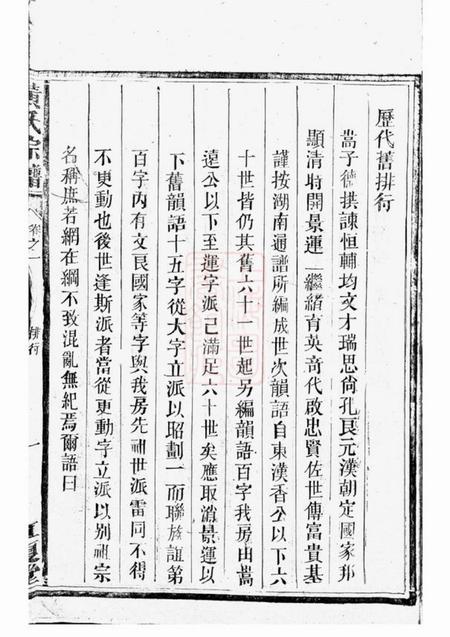 歷代舊排行
嵩子德拱諫恒輔均文才瑞思尙孔艮元漢朝定國家邦
顯清時開景運繼緒育英奇代啟忠賢佐世傳富貴基
謹按湖南通譜所編成世次韻語自東漢香公以下六
十世皆仍其舊六十一世起另編韻語百字我房由嵩
遠公以下至運字派已滿足六十世矣應取消景運以
下舊韻語十五字從大字立派以昭劃一而聯族誼第
百字內有文艮國家等字與我房先祖世派雷同不得
不更動也後世逢斯派者當從更動字立派以別祖宗
名稱庶若網在綱不致混亂無紀焉爾語曰
黃氏宗譜
卷之一
排行
一
江夏堂